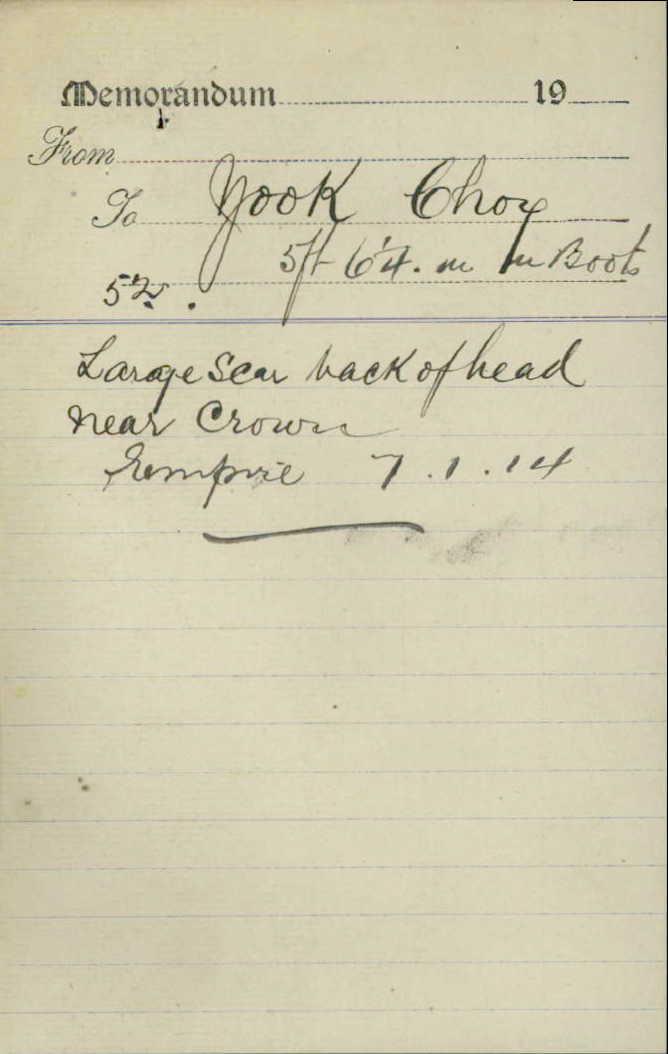 Memorandum 19
From
To Yook Choy
5ft 6¼. in in Boots
52
Large Scar back of head
near Crown
Empire 7.1.14